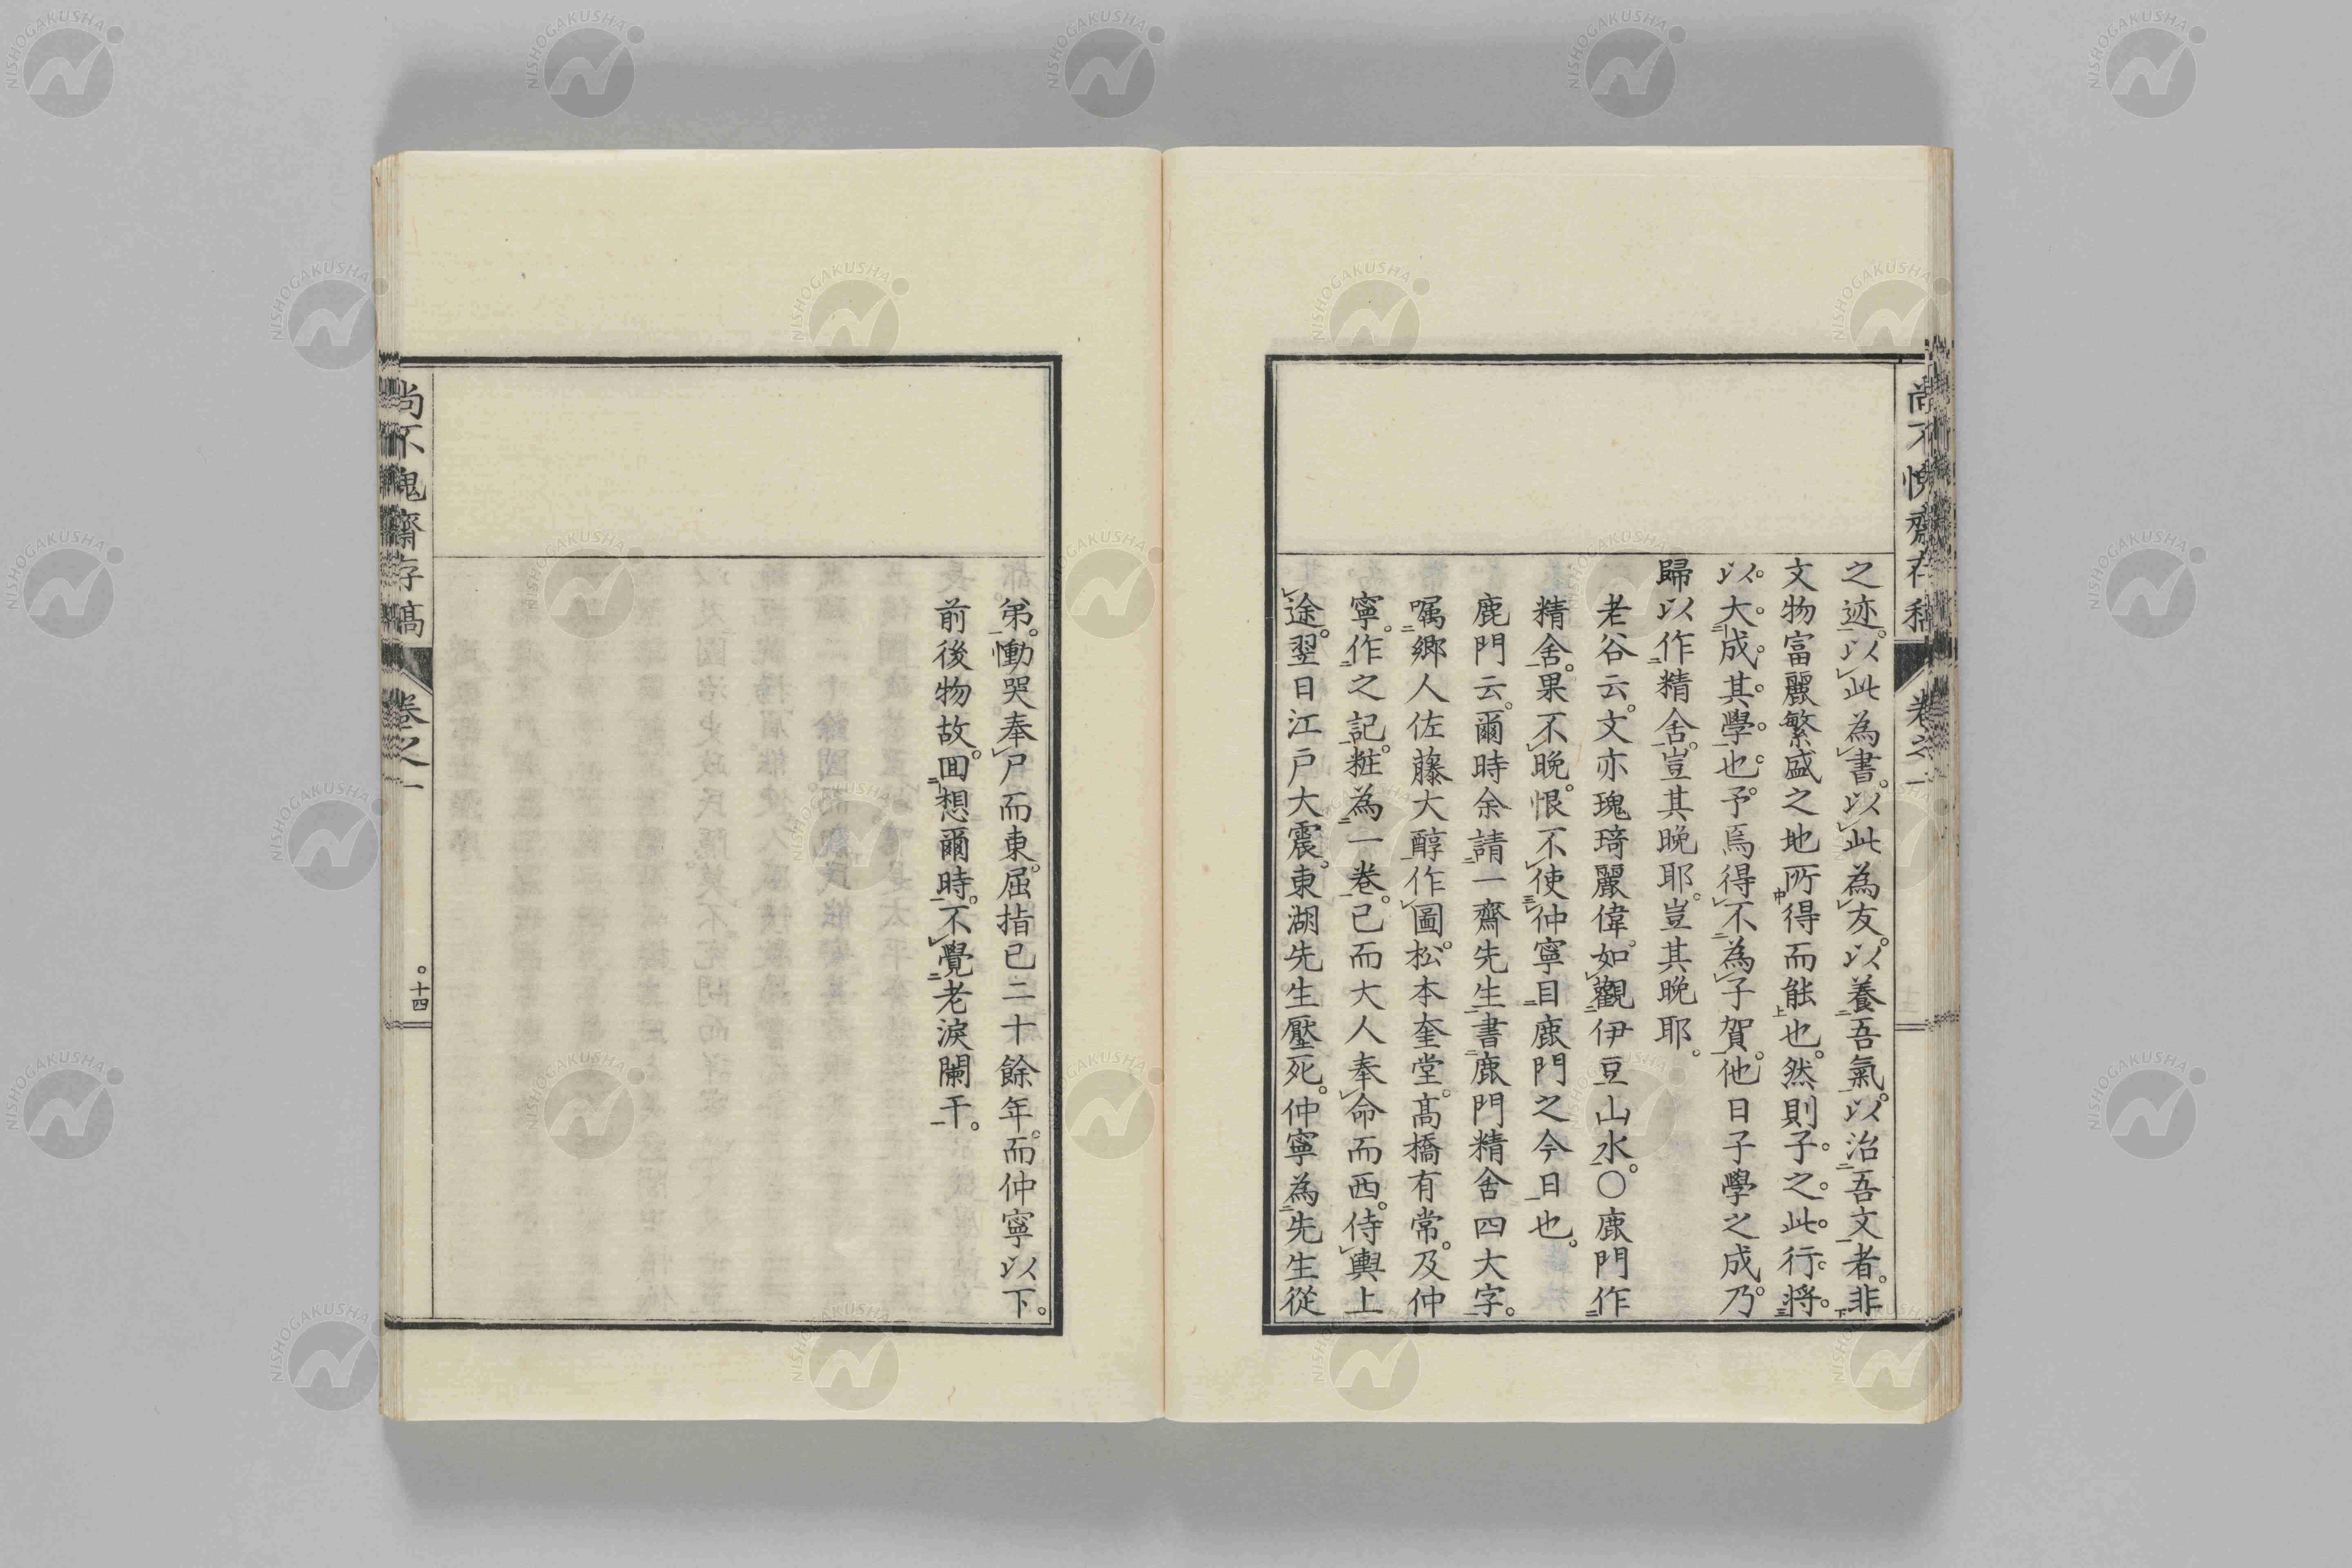 尚不愧齋存稿 卷之一
之迹。以此為書。以此為友。以養吾氣。以治吾文者。非
文物富麗繁盛之地所得而能也。然則子之此行。將
以大成其學也。予焉得不為子賀。他日子學之成。乃
歸以作精舍。豈其晚耶。豈其晚耶。
老谷云。文亦瑰琦麗偉。如觀伊豆山水。○鹿門作
精舍。果不晚。恨不使仲寧目鹿門之今日也。
鹿門云。爾時余請一齋先生。書鹿門精舍四大字。
囑鄉人佐藤大醇作圖。松本奎堂。高橋有常。及仲
寧。作之記。粧為一卷。已而大人奉命而西。侍輿上
途。翌日江戶大震。東湖先生壓死。仲寧為先生從
弟。慟哭奉尸而東。屈指已二十餘年。而仲寧以下。
前後物故。回想爾時。不覺老淚闌干。
尚不愧齋存稿 卷之一 十四
NISHOGAKUSHA